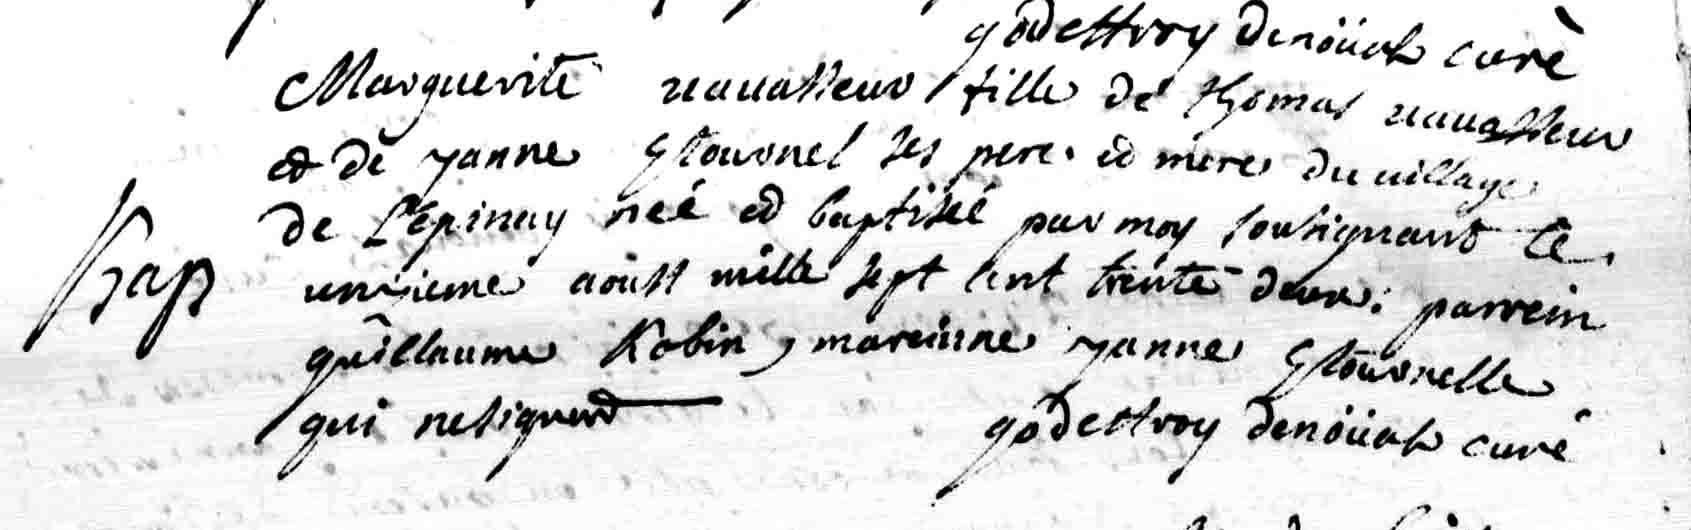 godeffroy denoüal curé
Marguerite vauasseur fille de thomas vauasseur
et de janne Gtournel ses pere et mere du uillage
bap de L'Epinay neé et baptiseé par moy sousignant Ce
unzieme aoust mille sept cent trente deux. parrein
guillaume Robin, mareinne janne Gtournelle
qui nesignent
godeffroy denoüal curé